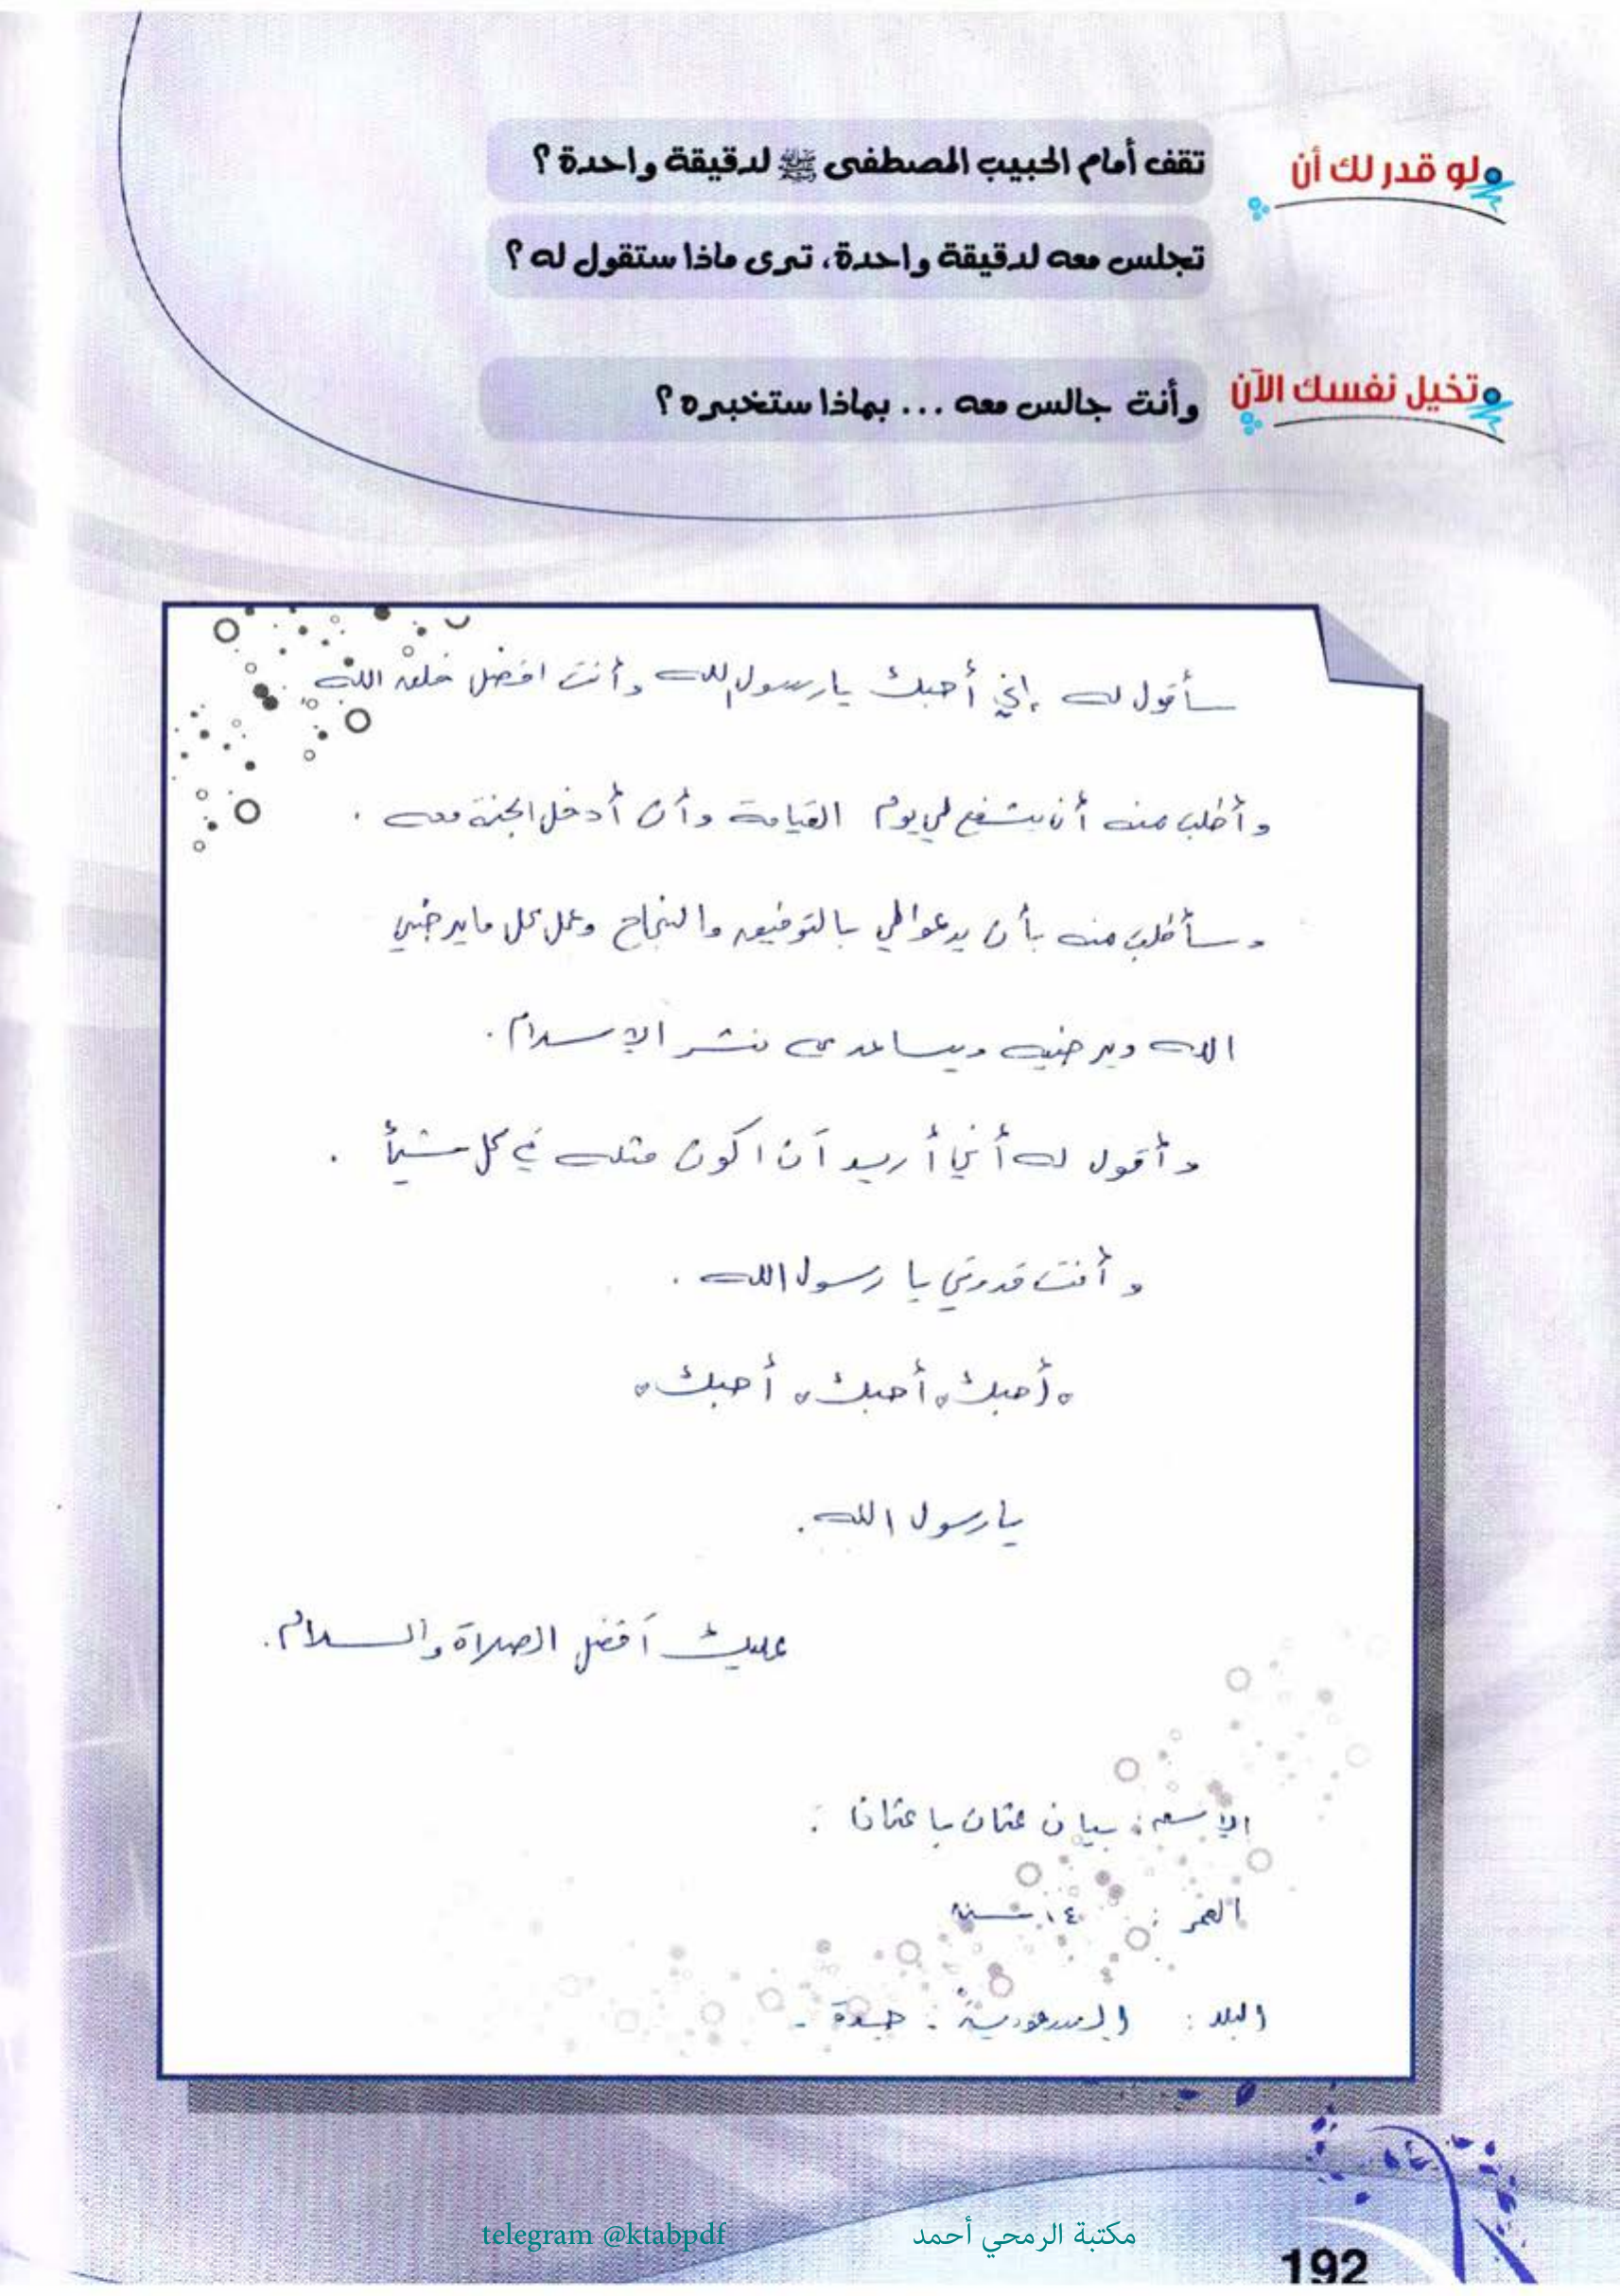 لو قدر لك أن
تقف أمام الحبيب المصطفى ﷺ لدقيقة واحدة ؟
تجلس معه لدقيقة واحدة، ترى ماذا ستقول له ؟
تخيل نفسك الآن
وأنت جالس معه ... بماذا ستخبره ؟
سأقول له إني أحبك يا رسول الله وأنت افضل خلق الله
وأطلب منه أن يشفع لي يوم القيامة وأن أدخل الجنة معه .
وسأطلب منه بأن يدعوا لي بالتوفيق والنجاح وعمل كل ما يرضي
الله ويرضيه ويساعد نشر الإسلام .
وأقول له أني أريد أن اكون مثله في كل شيأ .
وأنت قدوتي يا رسول الله .
أحبك، أحبك، أحبك
يا رسول الله .
عليك أفضل الصلاة والسلام .
الإسم : بيان عثمان باعثمان .
العمر : ١٤ سنه
البلد : السعودية . جدة .
telegram @ktabpdf مكتبة الرمحي أحمد
192